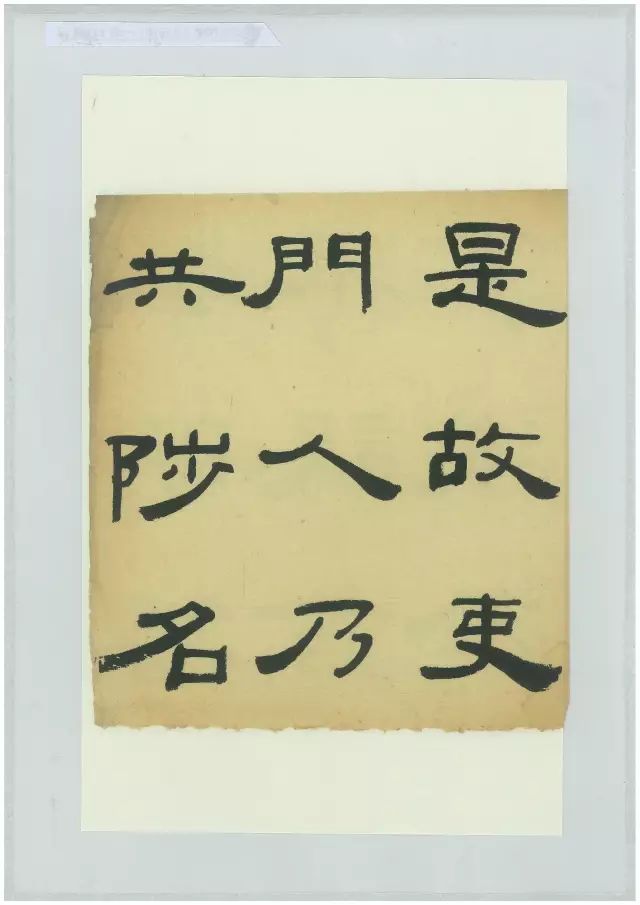 是故吏
門人乃
共陟名